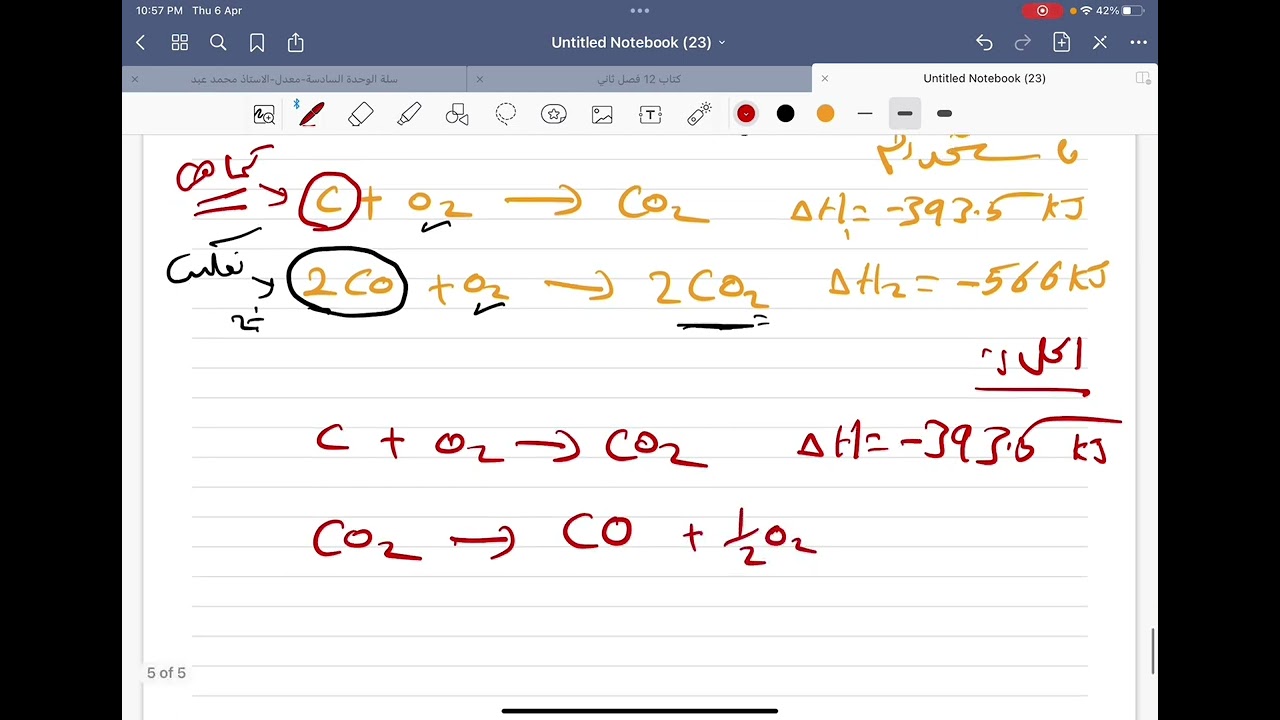 10:57 PM Thu 6 Apr 42%
Untitled Notebook (23)
سلة الوحدة السادسة-معدل-الاستاذ محمد عبد
كتاب 12 فصل ثاني
Untitled Notebook (23)
باستخدام
كما هي C + O₂ → CO₂ ΔH₁ = -393.5 KJ
نعكس 2CO + O₂ → 2CO₂ ΔH₂ = -566 KJ
÷2
الحل:
C + O₂ → CO₂ ΔH = -393.5 KJ
CO₂ → CO + ½O₂
5 of 5